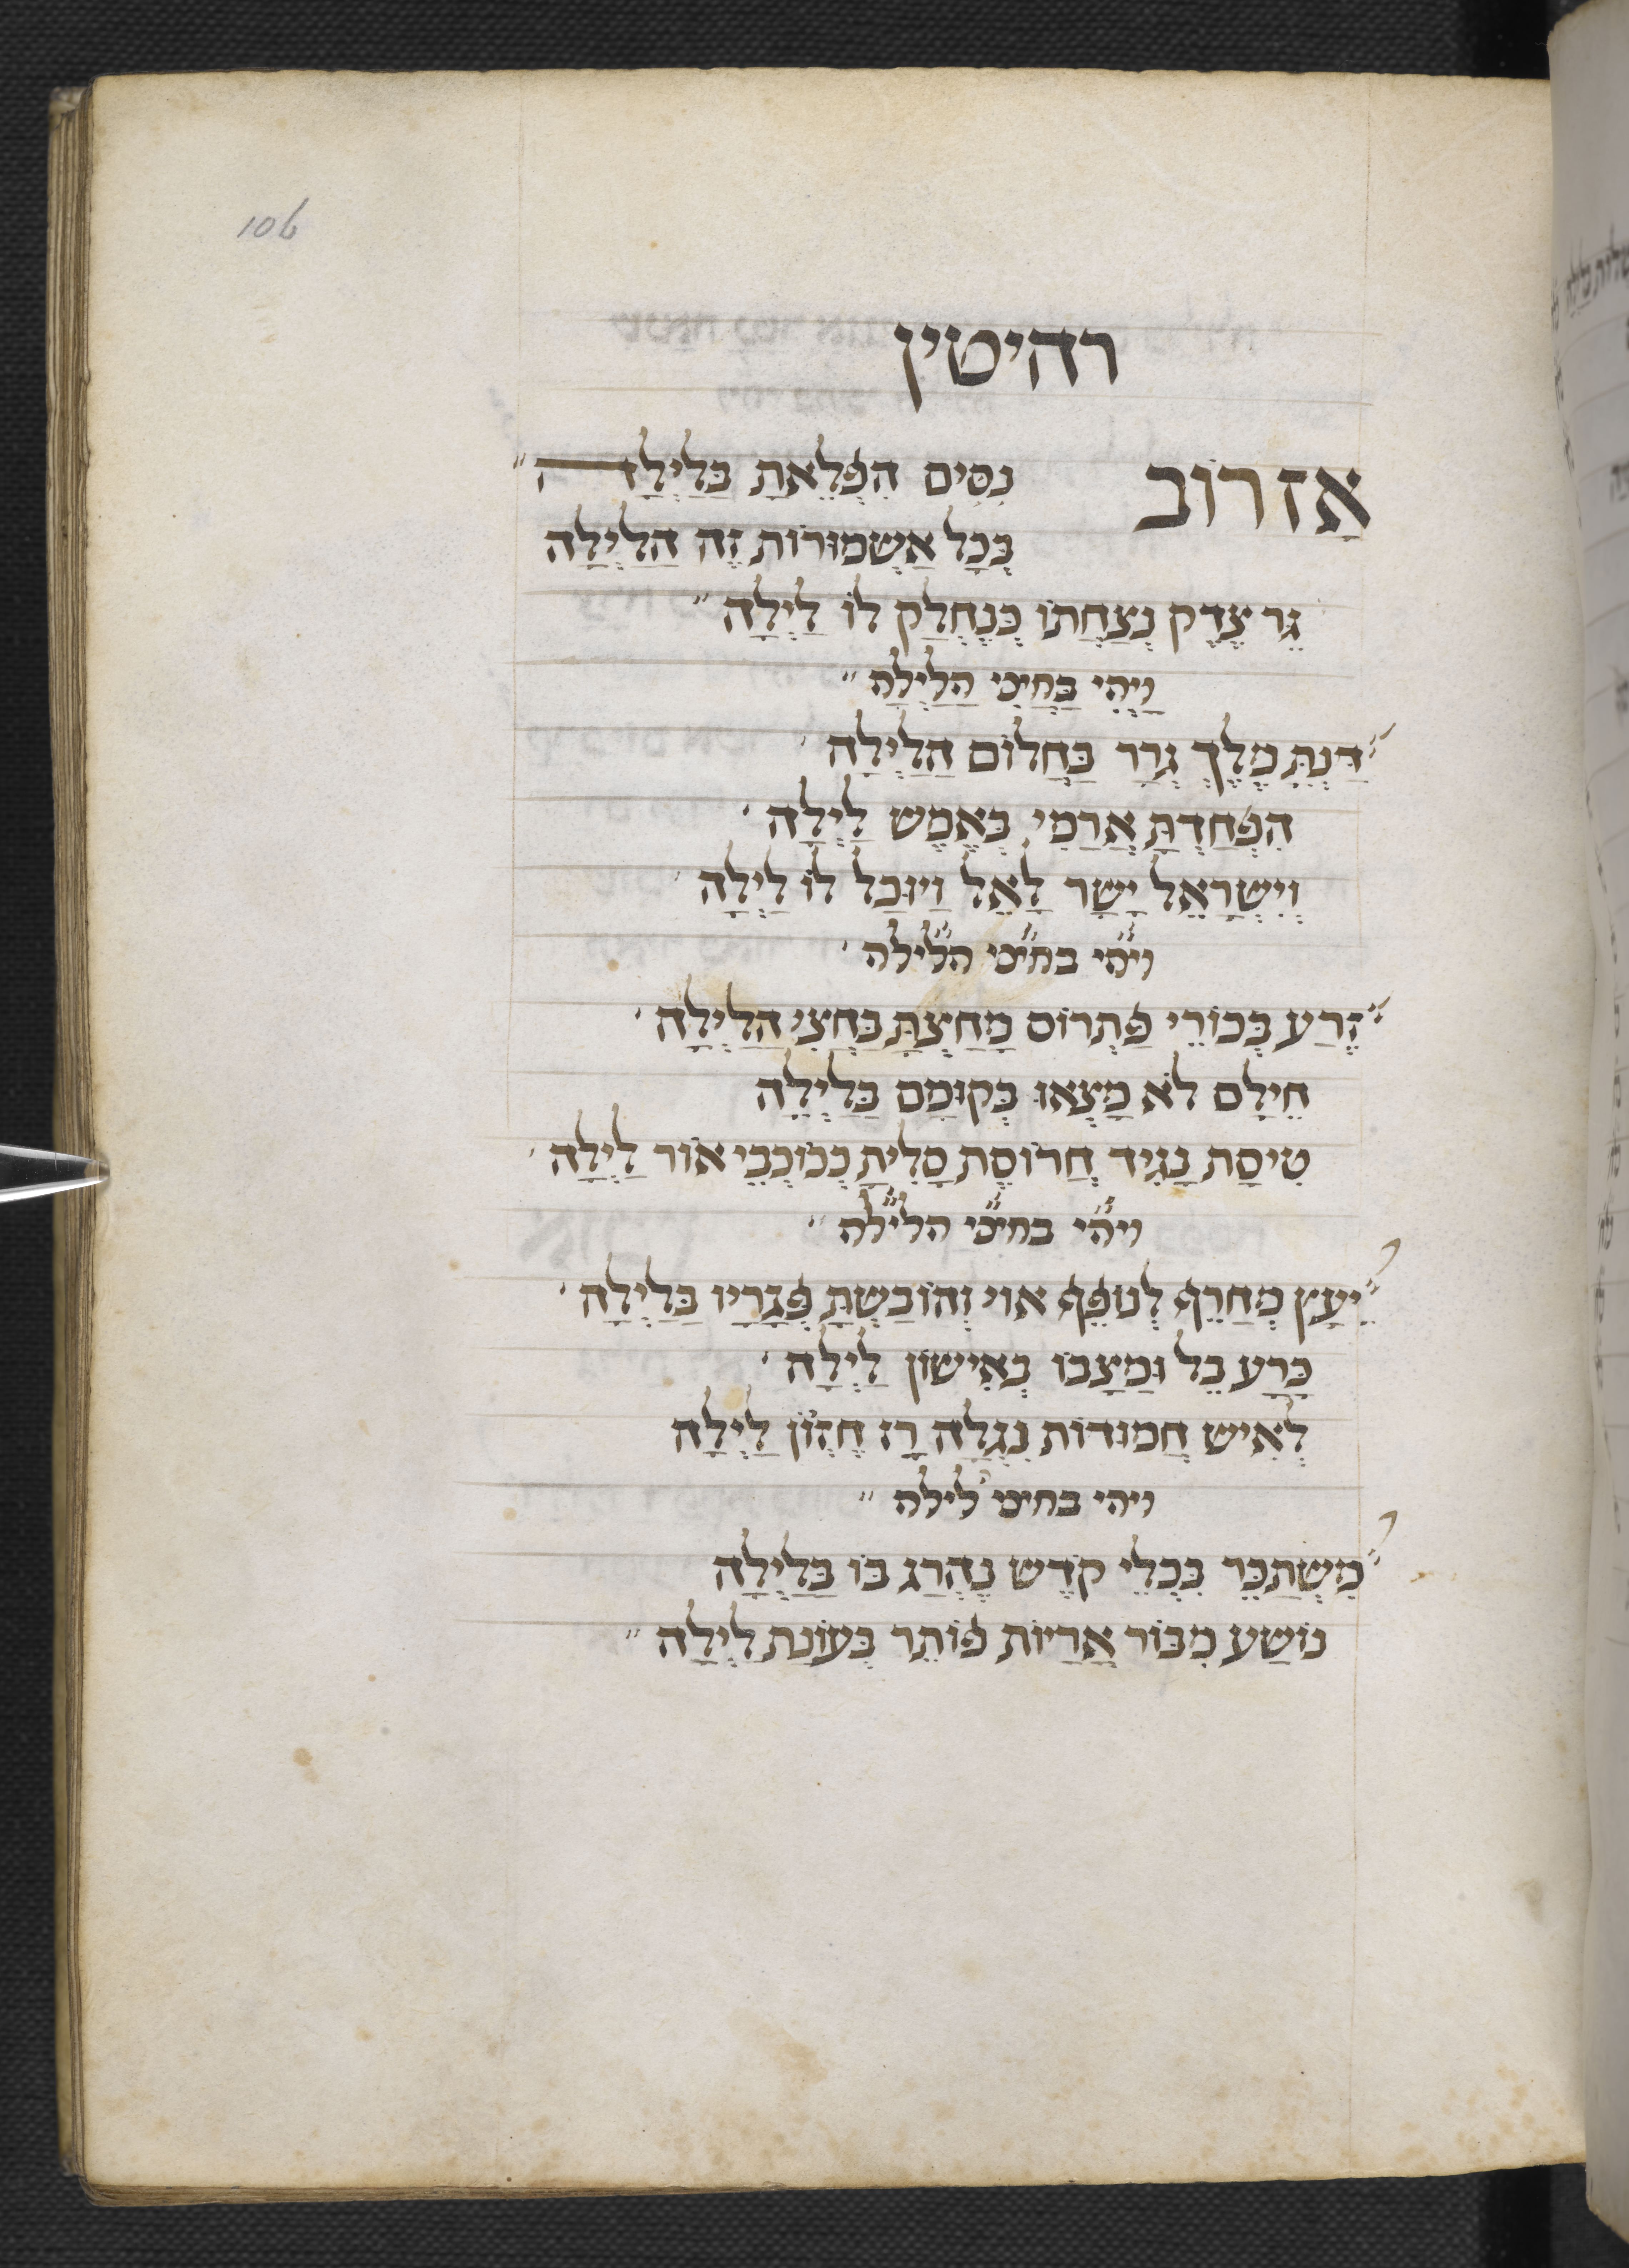 10b
רהיטין
אָז רוֹב
נִסִּים הִפְלֵאתָ בַּלַּיְלָה״
בְּכָל אַשְׁמוּרוֹת זֶה הַלַּיְלָה
גֵּר צֶדֶק נִצַּחְתּוֹ כְּנֶחֱלַק לוֹ לַיְלָה״
וַיְהִי בַּחֲצִי הַלַּיְלָה״
דַּנְתָּ מֶלֶךְ גְּרָר בַּחֲלוֹם הַלַּיְלָה
הִפְחַדְתָּ אֲרַמִּי בְּאֶמֶשׁ לַיְלָה
וְיִשְׂרָאֵל יָשַׂר לָאֵל וַיּוּכַל לוֹ לַיְלָה
ויהי בחצי הלילה
זֶרַע בְּכוֹרֵי פַּתְרוֹס מָחַצְתָּ בַּחֲצִי הַלַּיְלָה
חֵילָם לֹא מָצְאוּ בְּקוּמָם בַּלַּיְלָה
טִיסַת נְגִיד חֲרוֹשֶׁת סִלִּיתָ כְּכוֹכְבֵי אוֹר לַיְלָה
ויהי בחצי הלילה״
יָעַץ מְחָרֵף לְנוֹפֵף אִוּי וְהוֹבַשְׁתָּ פְגָרָיו בַּלַּיְלָה
כָּרַע בֵּל וּמַצָּבוֹ בְּאִישׁוֹן לַיְלָה
לְאִישׁ חֲמוּדוֹת נִגְלָה רָז חֲזוֹן לַיְלָה
ויהי בחצי לילה״
מִשְׁתַּכֵּר בִּכְלֵי קֹדֶשׁ נֶהֱרַג בּוֹ בַּלַּיְלָה
נוֹשַׁע מִבּוֹר אֲרָיוֹת פּוֹתֵר בִּעוֹנַת לַיְלָה״